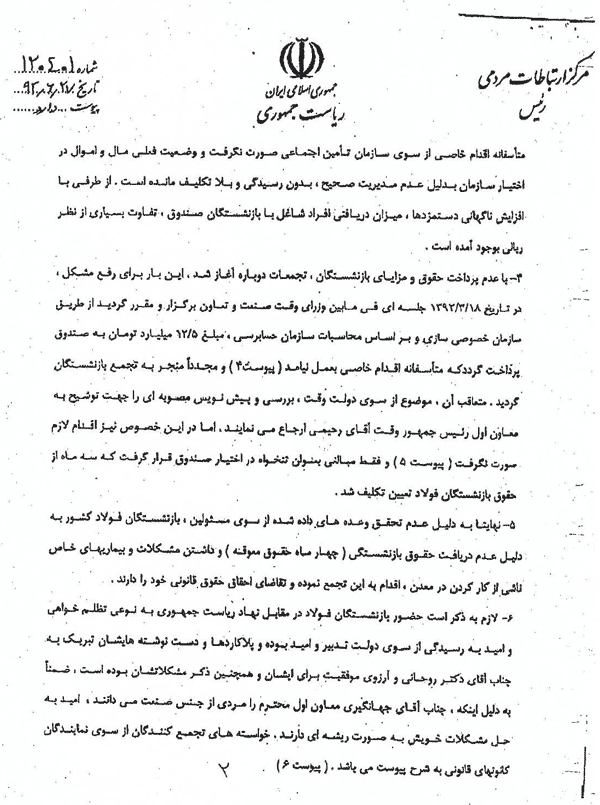 مرکز ارتباطات مردمی
رئیس
جمهوری اسلامی ایران
ریاست جمهوری
شماره ۱۲۰۶۰۱
تاریخ ۹۲/۰۶/۲۷
پیوست دارد
متأسفانه اقدام خاصی از سوی سازمان تأمین اجتماعی صورت نگرفت و وضعیت فعلی مال و اموال در
اختیار سازمان بدلیل عدم مدیریت صحیح ، بدون رسیدگی و بلا تکلیف مانده است . از طرفی با
افزایش ناگهانی دستمزدها ، میزان دریافتی افراد شاغل با بازنشستگان صندوق ، تفاوت بسیاری از نظر
ریالی بوجود آمده است .
۴- با عدم پرداخت حقوق و مزایای بازنشستگان ، تجمعات دوباره آغاز شد ، این بار برای رفع مشکل ،
در تاریخ ۱۳۹۲/۳/۱۸ جلسه ای فی مابین وزرای وقت صنعت و تعاون برگزار و مقرر گردید از طریق
سازمان خصوصی سازی و بر اساس محاسبات سازمان حسابرسی ، مبلغ ۱۲/۵ میلیارد تومان به صندوق
پرداخت گردد که متأسفانه اقدام خاصی بعمل نیامد ( پیوست۴ ) و مجدداً منجر به تجمع بازنشستگان
گردید . متعاقب آن ، موضوع از سوی دولت وقت ، بررسی و پیش نویس مصوبه ای را جهت توشیح به
معاون اول رئیس جمهور وقت آقای رحیمی ارجاع می نمایند ، اما در این خصوص نیز اقدام لازم
صورت نگرفت ( پیوست ۵ ) و فقط مبالغی بعنوان تنخواه در اختیار صندوق قرار گرفت که سه ماه از
حقوق بازنشستگان فولاد تعیین تکلیف شد .
۵- نهایتا به دلیل عدم تحقق وعده های داده شده از سوی مسئولین ، بازنشستگان فولاد کشور به
دلیل عدم دریافت حقوق بازنشستگی ( چهار ماه حقوق معوقه ) و داشتن مشکلات و بیماریهای خاص
ناشی از کار کردن در معدن ، اقدام به این تجمع نموده و تقاضای احقاق حقوق قانونی خود را دارند .
۶- لازم به ذکر است حضور بازنشستگان فولاد در مقابل نهاد ریاست جمهوری به نوعی تظلم خواهی
و امید به رسیدگی از سوی دولت تدبیر و امید بوده و پلاکاردها و دست نوشته هایشان تبریک به
جناب آقای دکتر روحانی و آرزوی موفقیت برای ایشان و همچنین ذکر مشکلاتشان بوده است ، ضمناً
به دلیل اینکه ، جناب آقای جهانگیری معاون اول محترم را مردی از جنس صنعت می دانند ، امید به
حل مشکلات خویش به صورت ریشه ای دارند . خواسته های تجمع کنندگان از سوی نمایندگان
کانونهای قانونی به شرح پیوست می باشد . ( پیوست ۶ )
۲